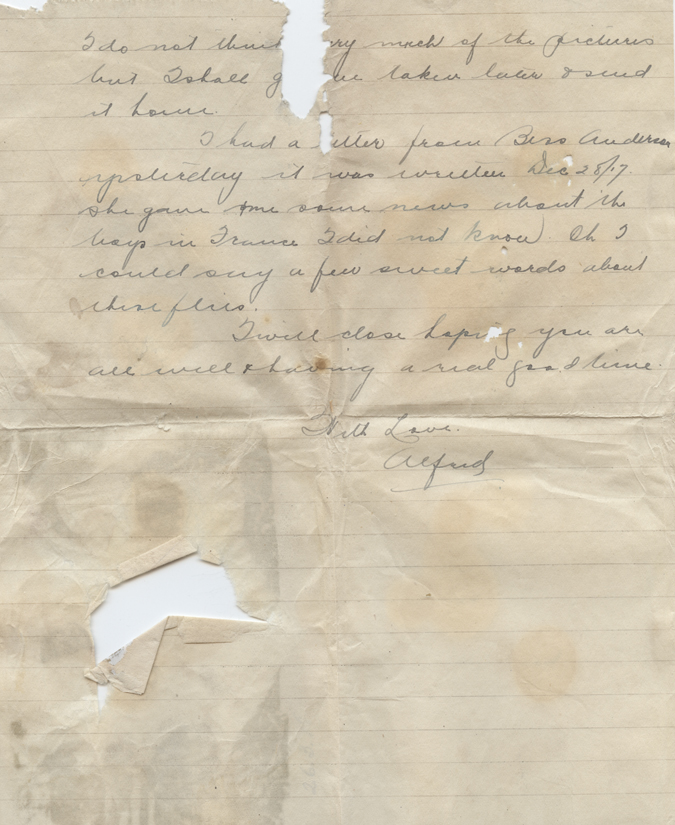 I do not think ry much of the pictures
but I shall g ne taken later & send
it home.
I had a etter from Bess Anderson
yesterday it was written Dec 28/17.
She gave me some news about the
boys in France I did not know. Oh I
could say a few sweet words about
these flies.
I will close hoping you are
all well & having a real good time.
With Love.
Alfred